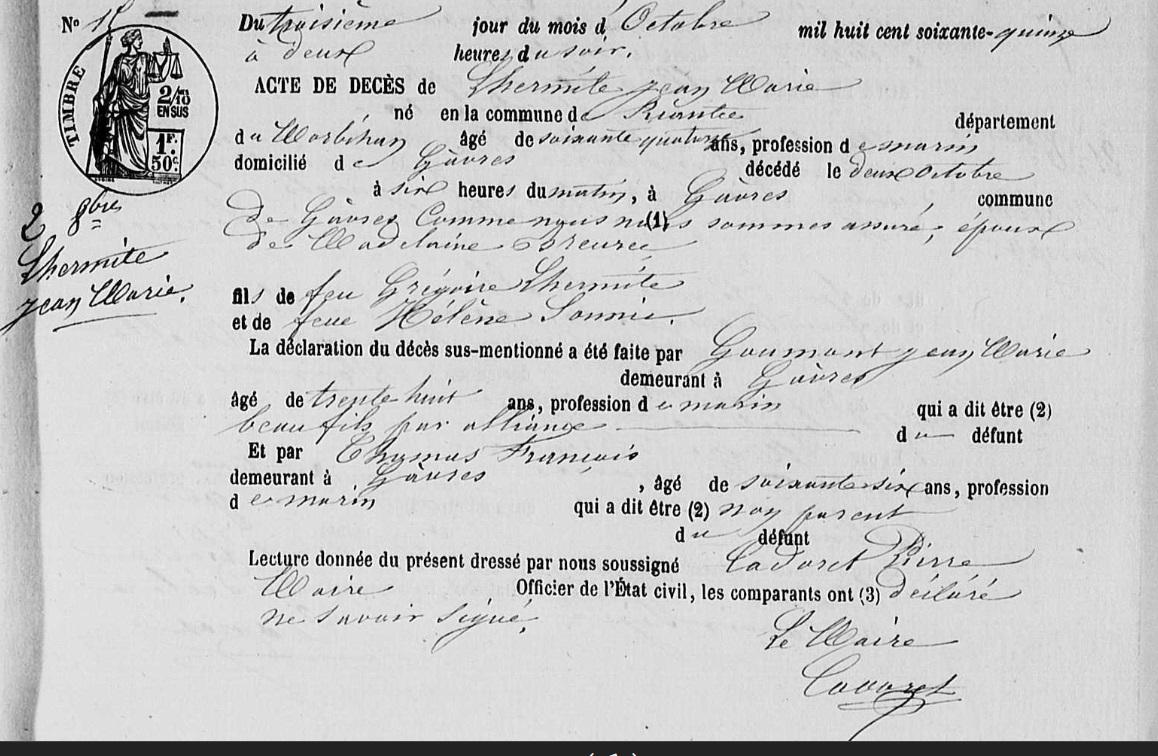 N°
Du troisième jour du mois d'Octobre mil huit cent soixante-quinze
à deux heures du soir.
TIMBRE
2/10 MES EN SUS
1F. 50c.
ACTE DE DECÈS de Lhermite Jean Marie
né en la commune de Riantec
département
du Morbihan âgé de soixante quatorze ans, profession de marin
domicilié de Gâvres décédé le deux Octobre
à six heures du matin, à Gâvres commune
de Gâvres Comme nous nous (1) sommes assuré, époux
de Madelaine
2 8bre
Lhermite
Jean Marie.
fils de feu Grégoire Lhermite
et de feue Hélène
La déclaration du décès sus-mentionné a été faite par Goumont Jean Marie
demeurant à Gâvres
âgé de trente huit ans, profession de marin qui a dit être (2)
beau fils par alliance du défunt
Et par Thomas François
demeurant à Gâvres, âgé de soixante six ans, profession
de marin qui a dit être (2) non parent
du défunt
Lecture donnée du présent dressé par nous soussigné Cadoret Pierre
Maire Officier de l'État civil, les comparants ont (3) déclaré
ne savoir signé.
Le Maire
Cadoret